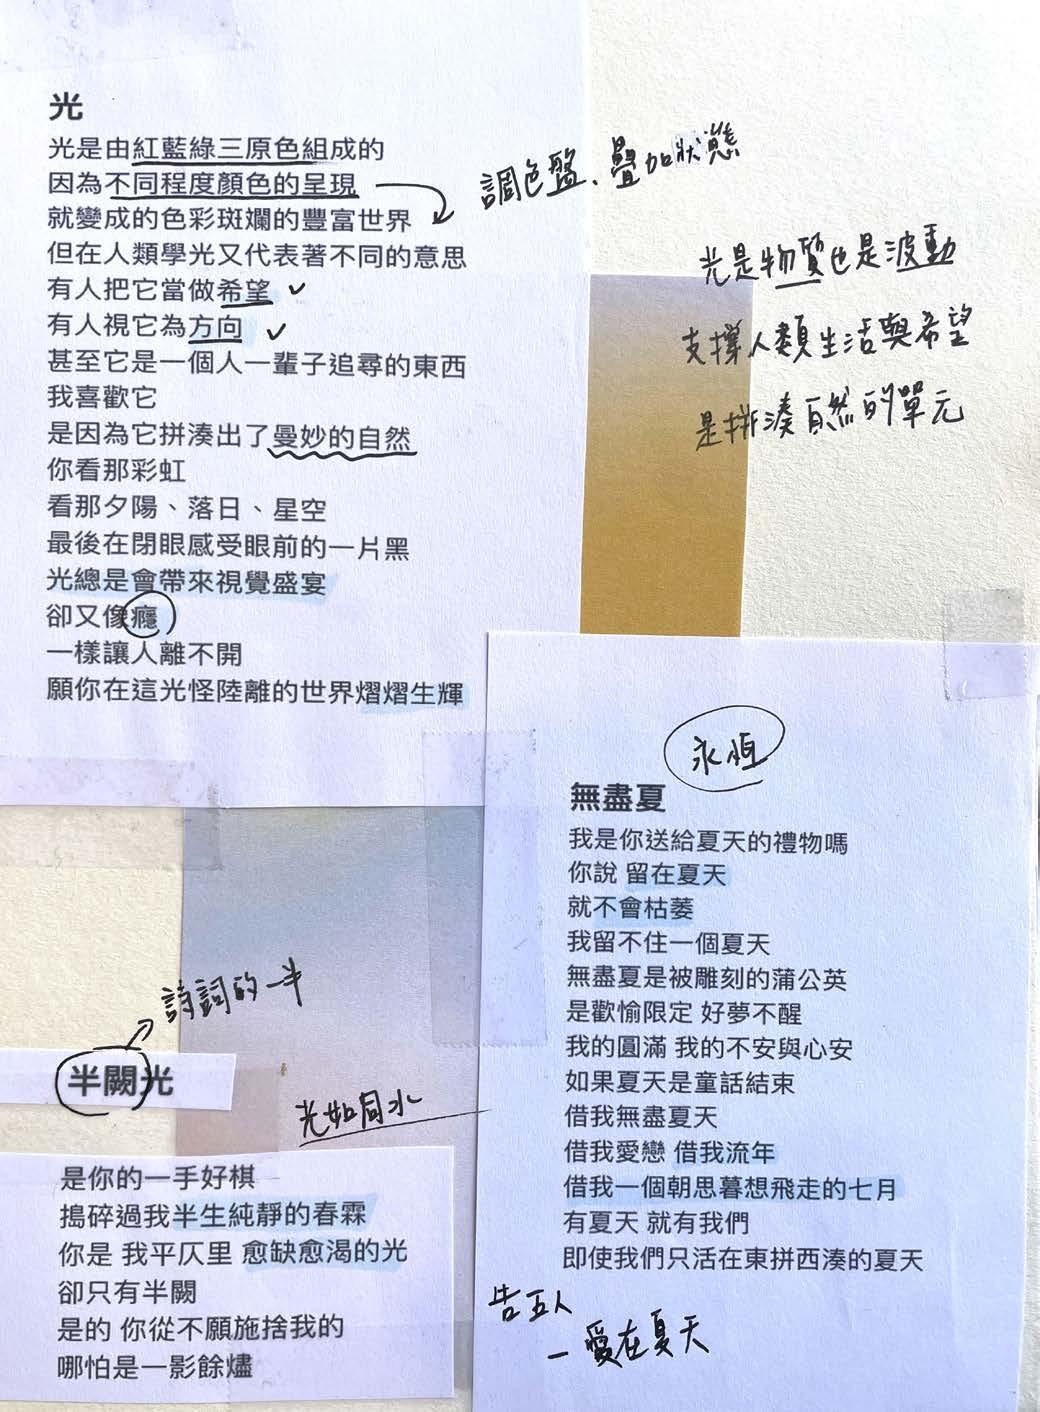 光
光是由紅藍綠三原色組成的
因為不同程度顏色的呈現
就變成的色彩斑斕的豐富世界
但在人類學光又代表著不同的意思
有人把它當做希望
有人視它為方向
甚至它是一個人一輩子追尋的東西
我喜歡它
是因為它拼湊出了曼妙的自然
你看那彩虹
看那夕陽、落日、星空
最後在閉眼感受眼前的一片黑
光總是會帶來視覺盛宴
卻又像癮
一樣讓人離不開
願你在這光怪陸離的世界熠熠生輝
調色盤、疊加狀態
光是物質也是波動
支撐人類生活與希望
是拼湊自然的單元
永恆
無盡夏
我是你送給夏天的禮物嗎
你說 留在夏天
就不會枯萎
我留不住一個夏天
無盡夏是被雕刻的蒲公英
是歡愉限定 好夢不醒
我的圓滿 我的不安與心安
如果夏天是童話結束
借我無盡夏天
借我愛戀 借我流年
借我一個朝思暮想飛走的七月
有夏天 就有我們
即使我們只活在東拼西湊的夏天
告五人
一愛在夏天
詩詞的一半
半闕光
光如同水
是你的一手好棋
搗碎過我半生純靜的春霖
你是 我平仄里 愈缺愈渴的光
卻只有半闕
是的 你從不願施捨我的
哪怕是一影餘燼